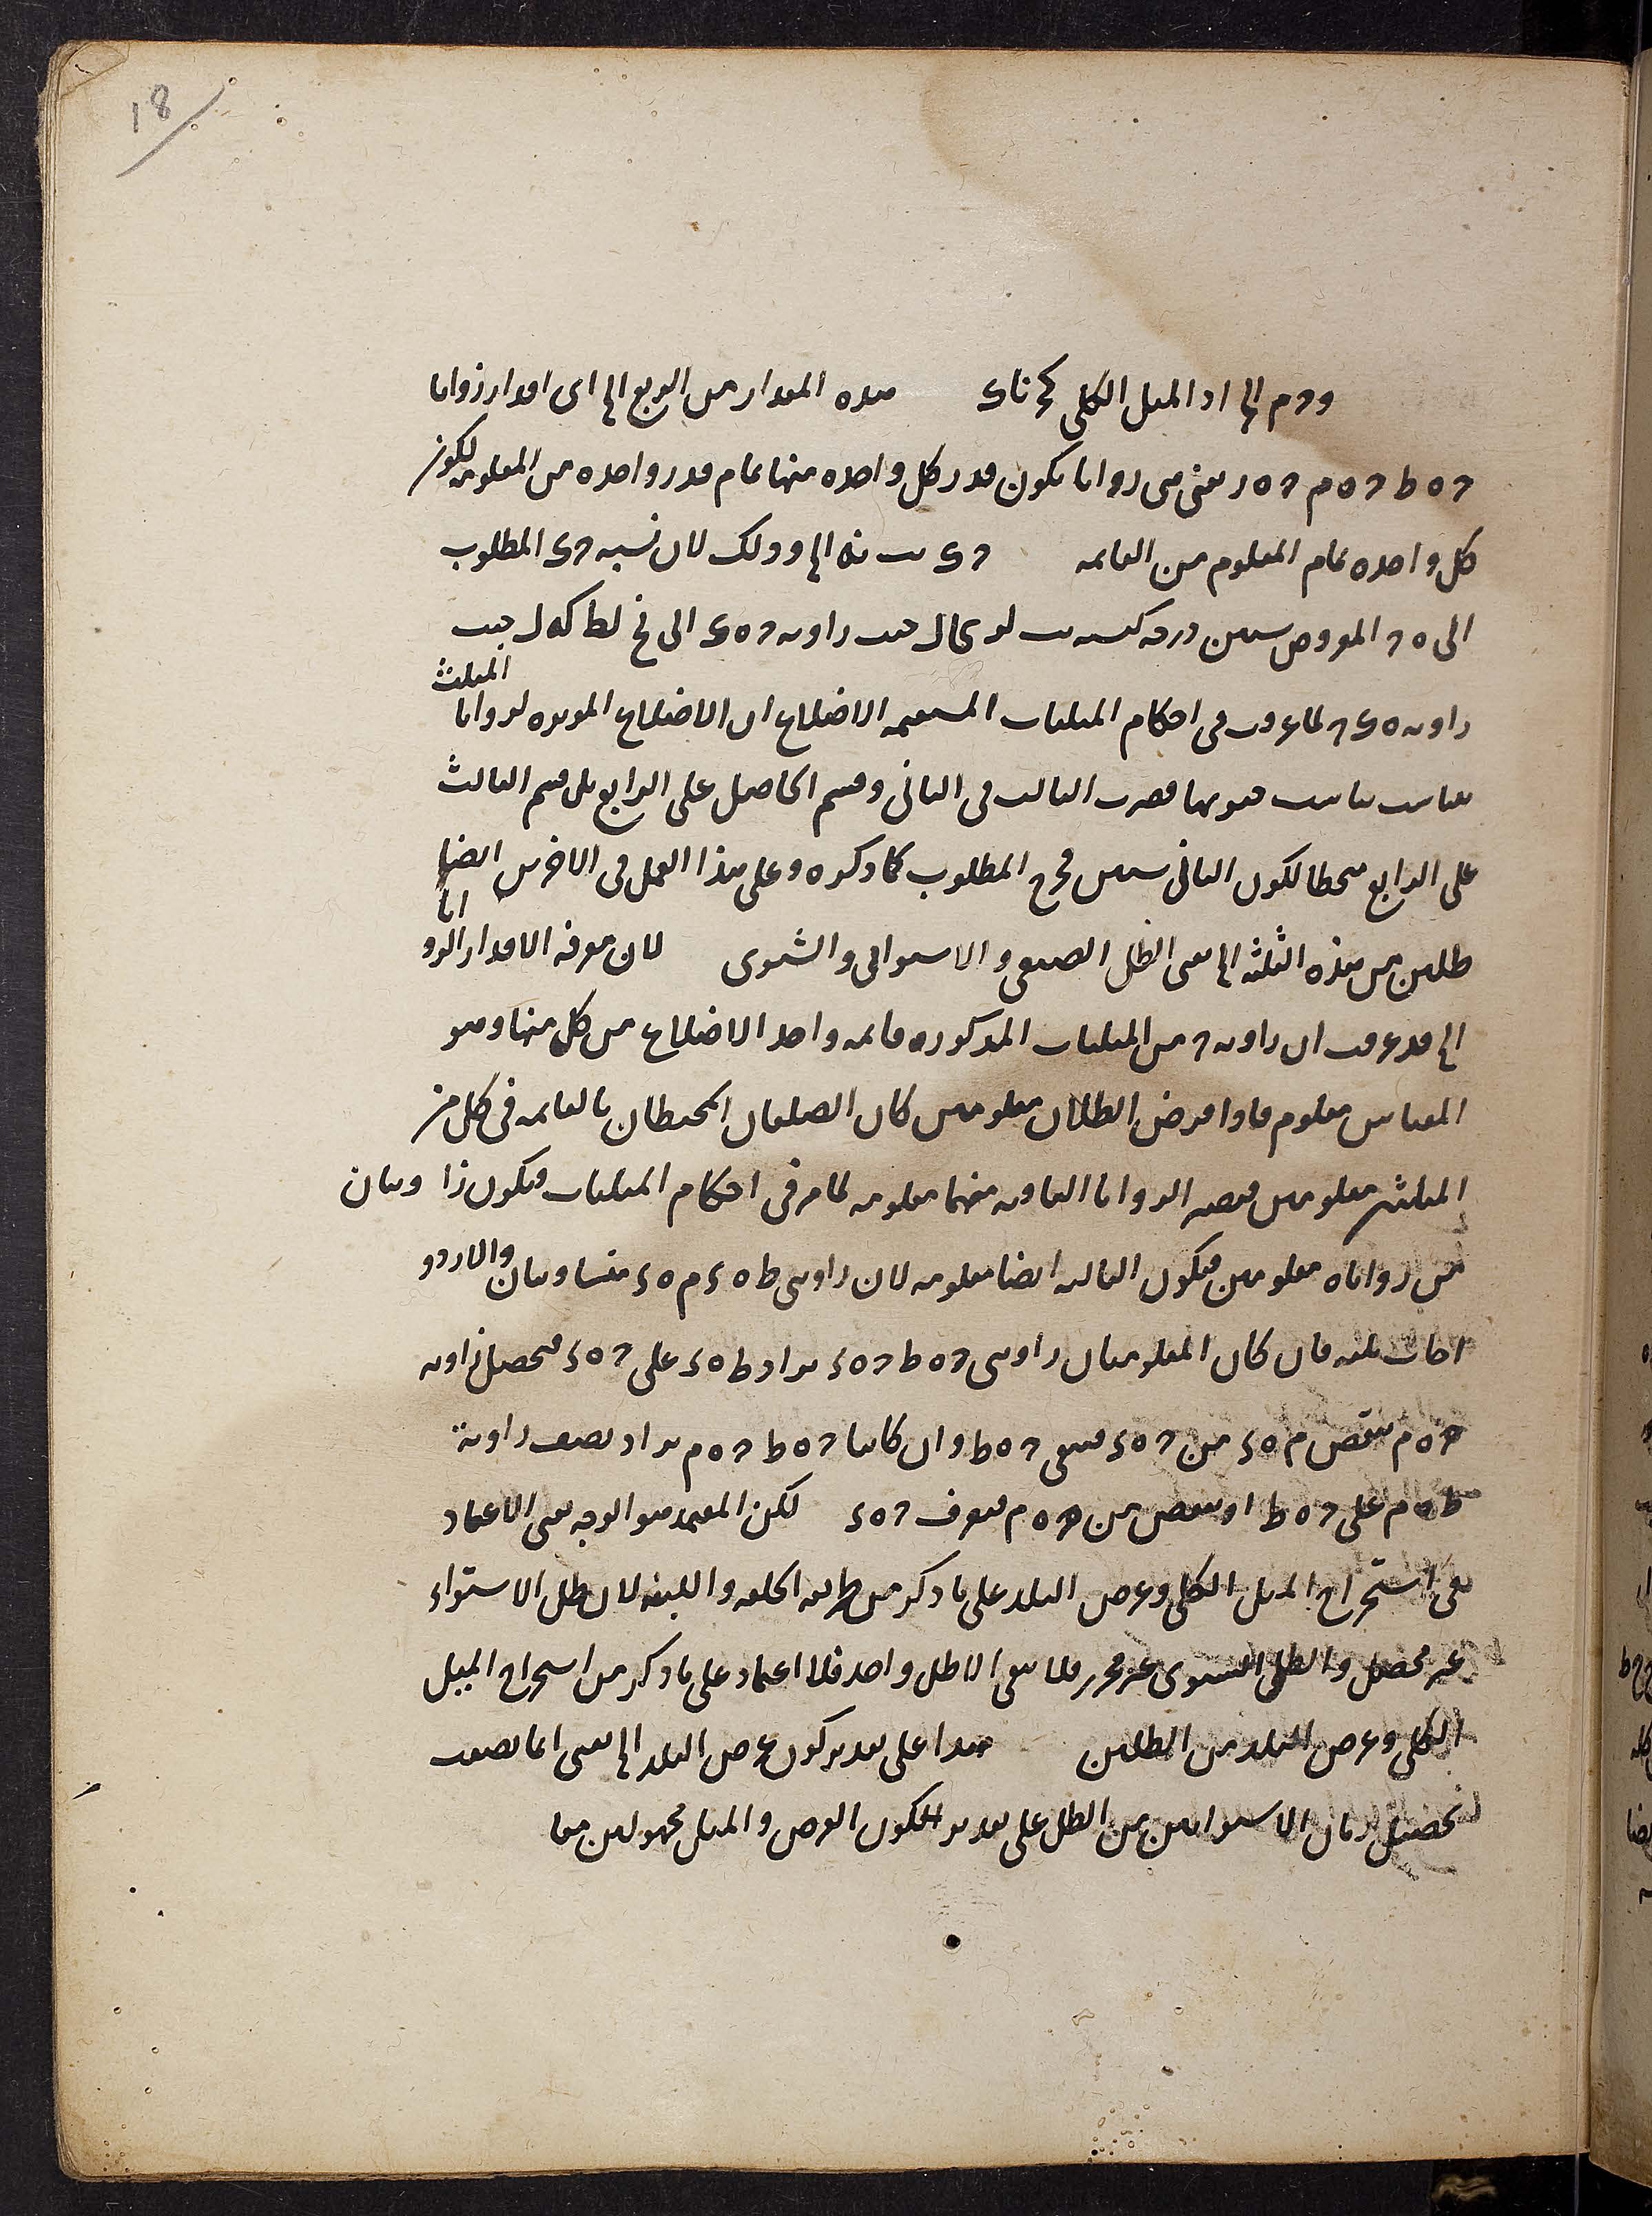 18
و حم الى اذ الميل الكلى كج نا ى هذه المقدار من الربع الى اى اقدار زوايا
ح ه ط ح ه م ح ه ر يعنى هى زوايا يكون قدر كل واحده منها تمام قدر واحده من المعلومه لكون
كل واحده تمام المعلوم من القائمه الى وذلك لان نسبه ح ى المطلوب
الى ه ح المفروض ستين درجه كنسبه جيب زاويه ح ه ى الى جيب
زاويه ه ى ح لما عرف فى احكام المثلثات المستقيمه الاضلاع ان الاضلاع الموتره لزوايا المثلث
تناسب جيوبها فضرب الثالث فى الثانى وقسم الحاصل على الرابع بل قسم الثالث
على الرابع منحطا لكون الثانى ستين فخرج المطلوب كما ذكره وعلى هذا العمل فى الاخرين ايضا
ظلين من هذه الثلثه الى يعنى الظل الصيفى والاستوائى والشتوى لان معرفه الاقدار الزوايا
الى قد عرفت ان زاويه ح من المثلثات المذكوره قائمه واحد الاضلاع من كل منها وهو
المقياس معلوم فاذا فرض الظلان معلومين كان الضلعان المحيطان بالقائمه فى كل من
المثلثين معلومين فيصير الزوايا الباقيه منهما معلومه لما مر فى احكام المثلثات فيكون زاويتان
من زواياه معلومين فيكون الثالثه ايضا معلومه لان زاويتى ط ه ى م ه ى متساويتان والازدو
اجات ثلثه فان كان المعلومتان زاويتى ح ه ط ح ه ى يزاد ط ه ى على ح ه ى فيحصل زاويه
ح ه م ينقص م ه ى من ح ه ى فيبقى ح ه ط وان كانتا ح ه ط ح ه م يزاد نصف زاوية
ط ه م على ح ه ط او ينقص من ح ه م فيعرف ح ه ى لكن المعتمد هو الوجه يعنى الاعتماد
فى استخراج الميل الكلى وعرض البلد على ما ذكر من طريقه الحلقه واللبنه لان ظل الاستواء
غير محصل والظل الشتوى غير محرر فلما بقى الا ظل واحد فلا اعتماد على ما ذكر من استخراج الميل
الكلى وعرض البلد من الظلين هذا على تقدير كون عرض البلد الى يعنى انما يصعب
تحصيل زمان الاستوائين من الظل على تقدير لكون العرض والميل مجهولين معا